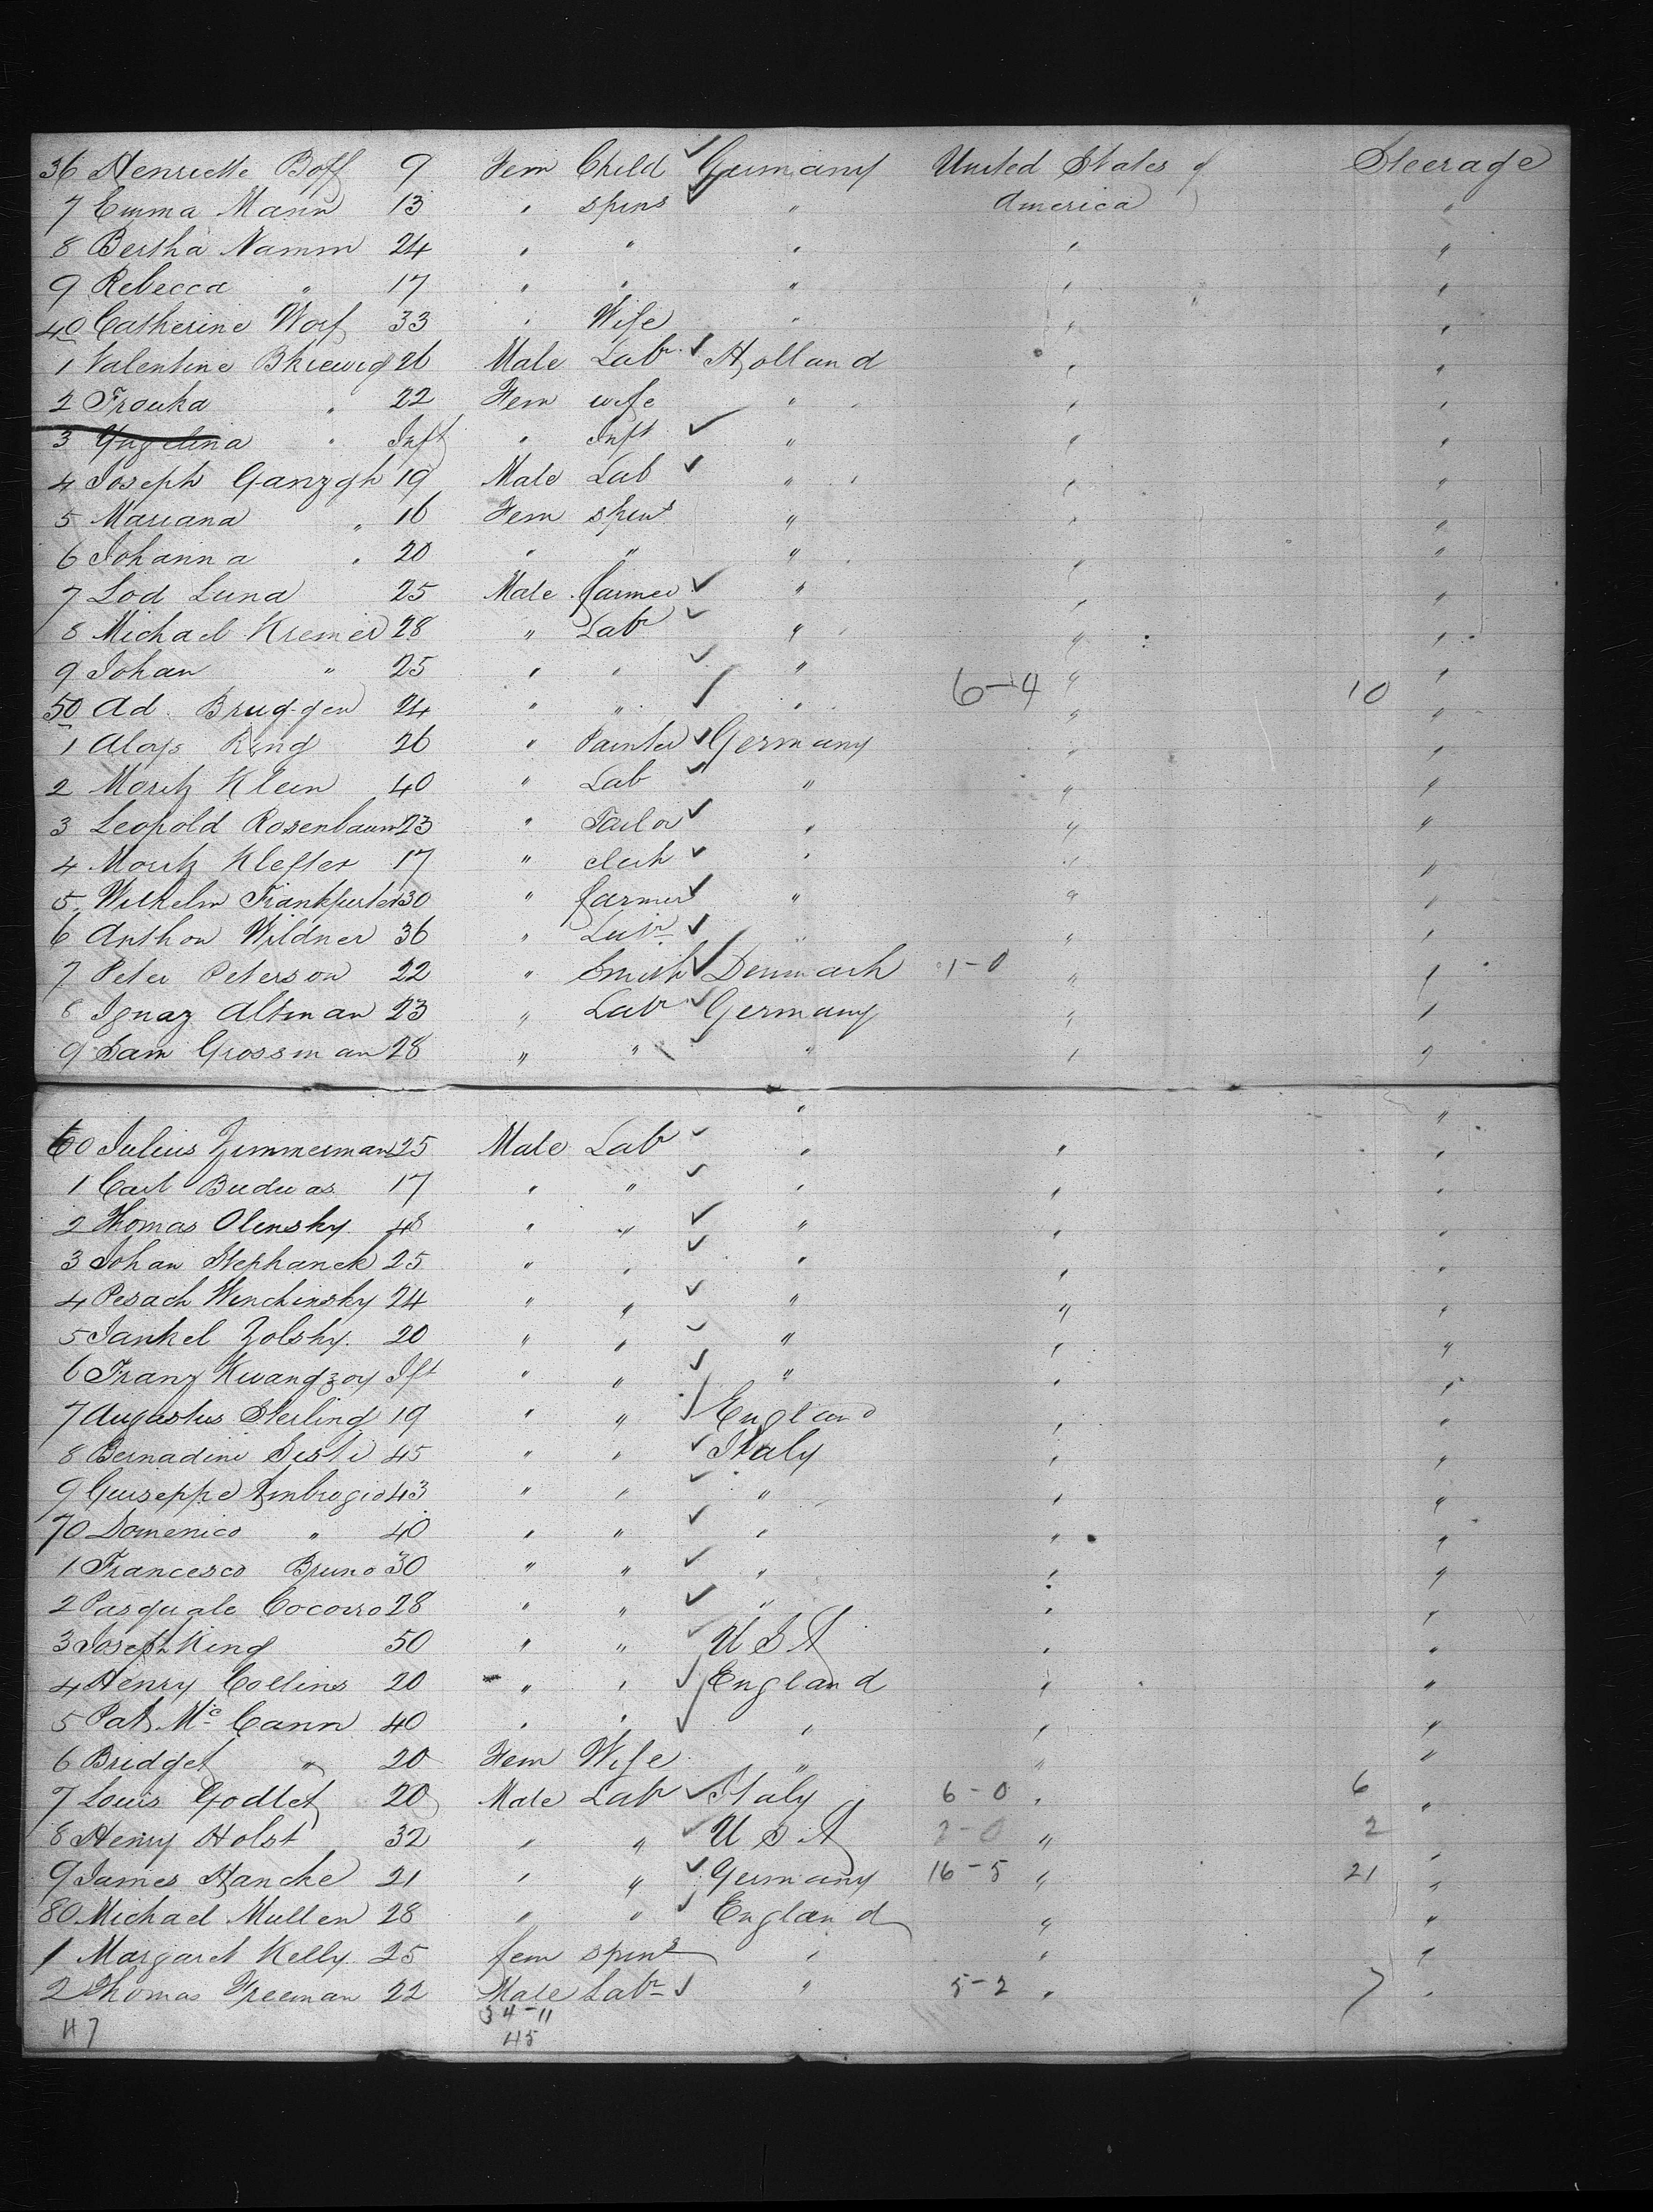 36 Henriette Boff 9 Fem Child ✓ Germany United States of Steerage
7 Emma Mann 13 " spins ✓ " America "
8 Bertha Namm 24 " " " " "
9 Rebecca " 17 " " " " "
40 Catherine Worf 33 " Wife " " "
1 Valentine Bkiewig 26 Male Labr ✓ Holland " "
2 Frouka " 22 Fem wife " " "
3 " Inft " Inft ✓ " " "
4 Joseph Ganzgh 19 Male Lab ✓ " " "
5 Mariana " 16 Fem spins " " "
6 Johanna " 20 " " " " "
7 Lod Lund 25 Male farmer ✓ " " "
8 Michael Kremer 28 " Labr ✓ " " "
9 Johan " 25 " " ✓ " " "
50 Ad Bruggen 24 " " ✓ " 6-4 " 10 "
1 Aloys Ring 26 " Painter ✓ Germany " "
2 Moritz Klein 40 " Lab ✓ " " "
3 Leopold Rosenbaum 23 " Tailor ✓ " " "
4 Moritz Klefter 17 " clerk ✓ " " "
5 Wilhelm Frankfurter 30 " farmer ✓ " " "
6 Anthon Wildner 36 " Labr ✓ " " "
7 Peter Peterson 22 " Smith ✓ Denmark 1-0 " "
8 Ignaz Altman 23 " Labr ✓ Germany " "
9 Sam Grossman 28 " " ✓ " " "
" "
60 Julius Zimmerman 25 Male Labr ✓ " " "
1 Carl Buduas 17 " " ✓ " " "
2 Thomas Olensky 48 " " ✓ " " "
3 Johan Stephanek 25 " " ✓ " " "
4 Pesach Winchinsky 24 " " ✓ " " "
5 Jankel Zolsky 20 " " ✓ " " "
6 Franz Kwangzoy Ift " " ✓ " " "
7 Augustus Sterling 19 " " ✓ England " "
8 Bernadini Sisti 45 " " ✓ Italy " "
9 Guiseppe Ambrogio 43 " " ✓ " " "
70 Domenico " 40 " " ✓ " " "
1 Francesco Bruno 30 " " ✓ " " "
2 Pasquale Cocorro 28 " " ✓ " " "
3 Joseph King 50 " " ✓ U S A " "
4 Henry Collins 20 " " ✓ England " "
5 Pat Mc Cann 40 " " ✓ " " "
6 Bridget " 20 Fem Wife " " "
7 Louis Godlet 20 Male Labr ✓ Italy 6-0 " 6 "
8 Henry Holst 32 " " ✓ U S A 2-0 " 2 "
9 James Hancke 21 " " ✓ Germany 16-5 " 21 "
80 Michael Mullen 28 " " ✓ England " "
1 Margaret Kelly 25 fem spins " " "
2 Thomas Freeman 22 Male Labr ✓ " 5-2 " 7 "
47 34-11
45